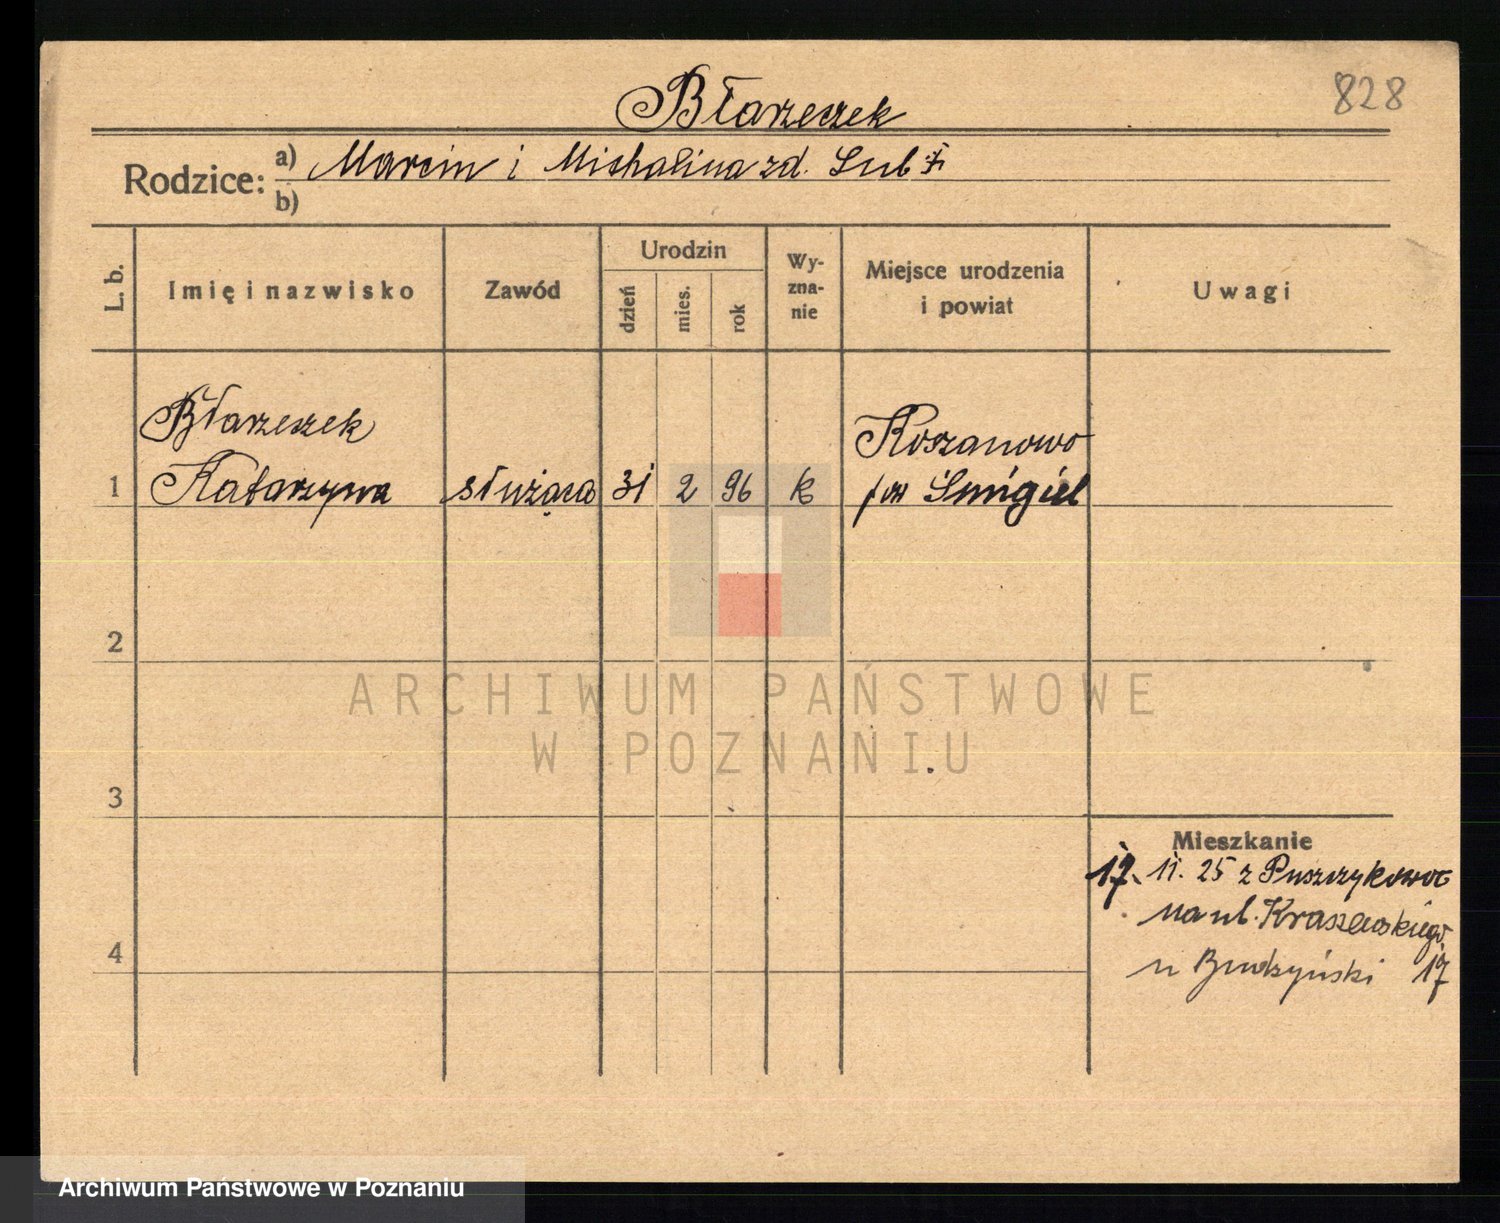 828
Błarzeczek
Rodzice: a) Marcin i Michalina zd.
b)
L. b.
Imię i nazwisko
Zawód
Urodzin
dzień
mies.
rok
Wy-
zna-
nie
Miejsce urodzenia
i powiat
Uwagi
Błarzeczek
1 Katarzyna służąca 31 2 96 k
Koszanowo
pow Śmigiel
2
3
4
Mieszkanie
17. 11. 25 z Puszczykowa
na ul. Kraszewskiego
u Budzyński 17
ARCHIWUM PAŃSTWOWE
W POZNANIU
Archiwum Państwowe w Poznaniu